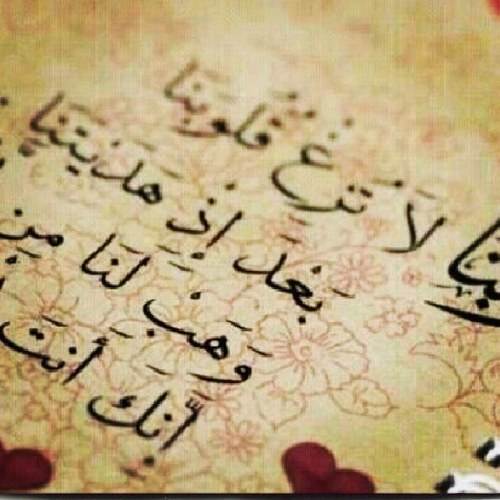 لَا تُزِغْ قُلُوبَنَا
بَعْدَ إِذْ هَدَيْتَنَا
وَهَبْ لَنَا مِن
إِنَّكَ أَنتَ